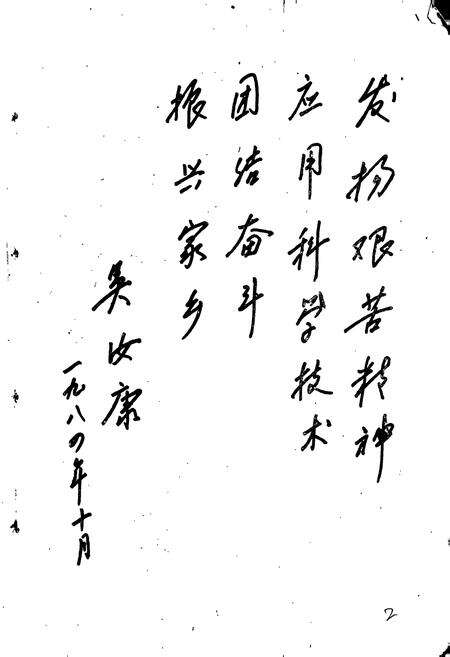 发扬艰苦精神
应用科学技术
团结奋斗
振兴家乡
吴汝康
一九八四年十月
2